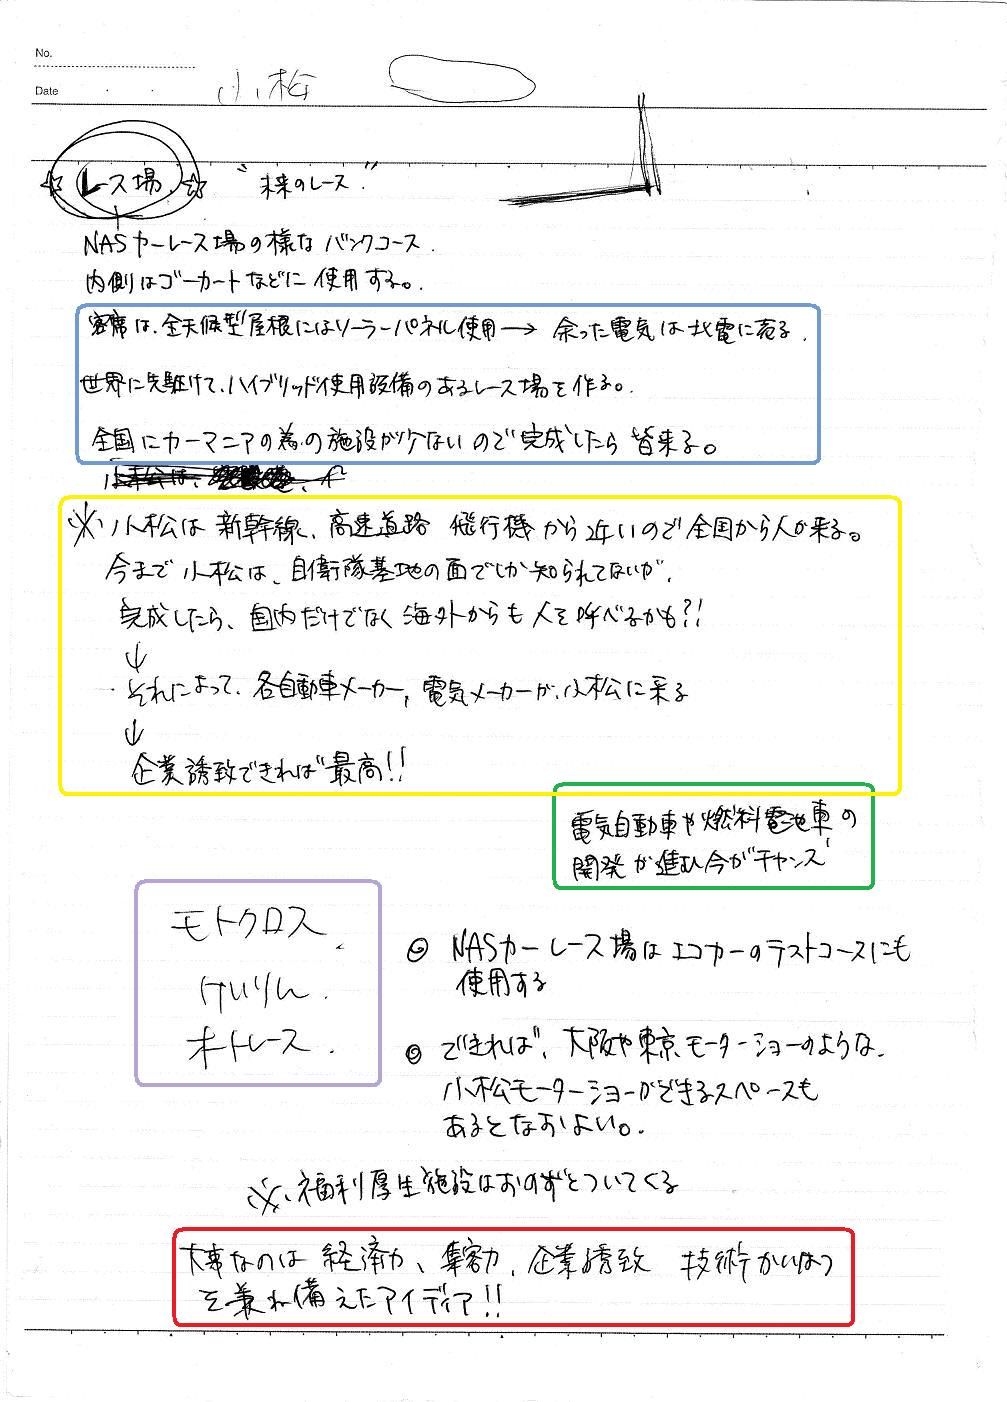 No.
Date
小松
☆レース場☆ "未来のレース"
NASカーレース場の様なバンクコース.
内側はゴーカートなどに使用する。
客席は、全天候型屋根にはソーラーパネル使用→余った電気は北電に売る.
世界に先駆けて、ハイブリッド使用設備のあるレース場を作る。
全国にカーマニアの為の施設が少ないので完成したら皆来る。
小松は、
※小松は新幹線、高速道路 飛行機から近いので全国から人が来る。
今まで小松は、自衛隊基地の面でしか知られてないが、
完成したら、国内だけでなく海外からも人を呼べるかも?!
↓
それによって、各自動車メーカー,電気メーカーが、小松に来る
↓
企業誘致できれば最高!!
電気自動車や燃料電池車の
開発が進む今がチャンス
モトクロス、
けいりん.
オートレース.
◎ NASカーレース場はエコカーのテストコースにも
使用する
◎ できれば、大阪や東京モーターショーのような、
小松モーターショーができるスペースも
あるとなおよい。
※、福利厚生施設はおのずとついてくる
大事なのは 経済力、集客力、企業誘致 技術かいはつ
を兼ね備えたアイディア!!